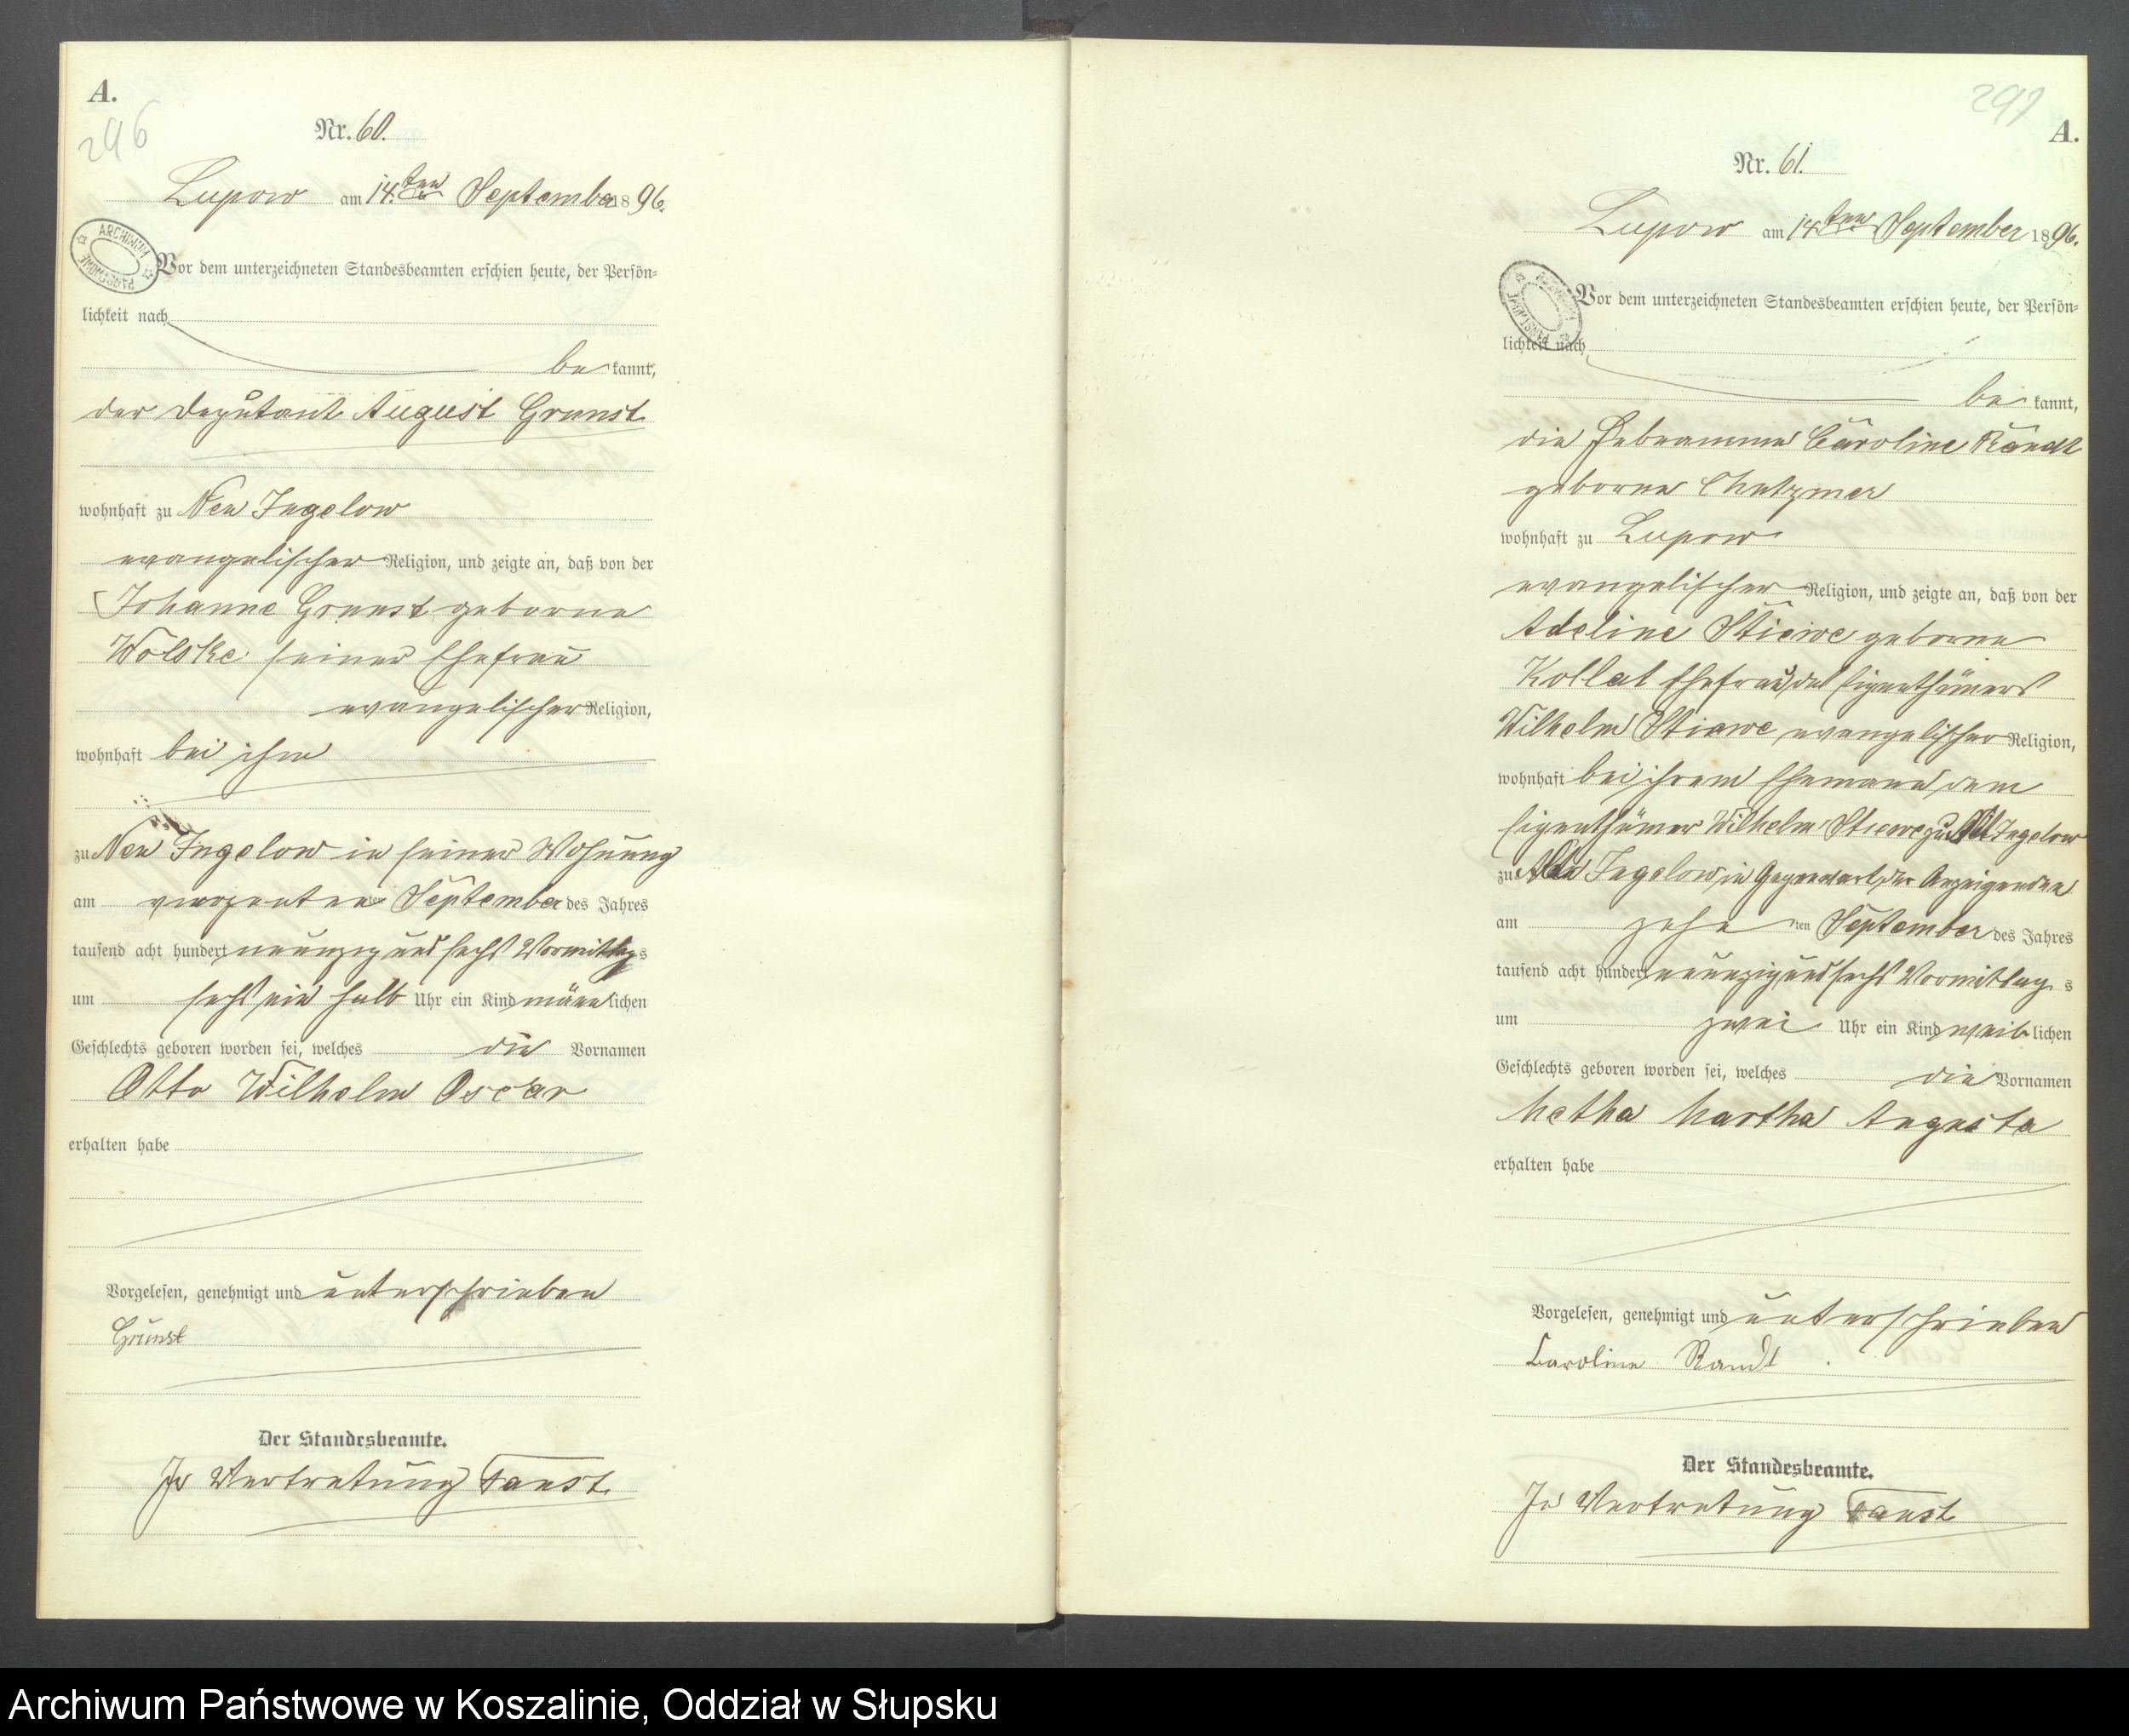 A.
296
Nr. 60.
Lupow am 14.ten September 1896.
ARCHIWUM PAŃSTWOWE
Vor dem unterzeichneten Standesbeamten erschien heute, der Persön-
lichkeit nach
bekannt,
der Deputant August Grunst
wohnhaft zu Neu Jugelow
evangelischer Religion, und zeigte an, daß von der
Johanne Grunst geborne
Wolske seiner Ehefrau
evangelischer Religion,
wohnhaft bei ihm
zu Neu Jugelow in seiner Wohnung
am vierzehnten September des Jahres
tausend acht hundert neunzig und sechs Vormittags
um sechs ein halb Uhr ein Kind männlichen
Geschlechts geboren worden sei, welches die Vornamen
Otto Wilhelm Oscar
erhalten habe
Vorgelesen, genehmigt und unterschrieben
Grunst
Der Standesbeamte.
In Vertretung Faust
297
A.
Nr. 61.
Lupow am 14.ten September 1896.
ARCHIWUM PAŃSTWOWE
Vor dem unterzeichneten Standesbeamten erschien heute, der Persön-
lichkeit nach
bekannt,
die Hebeamme Caroline Randt
geborne
wohnhaft zu Lupow
evangelischer Religion, und zeigte an, daß von der
Adeline Stiewe geborne
Kollat Ehefrau des Eigenthümers
Wilhelm Stiewe evangelischer Religion,
wohnhaft bei ihrem Ehemann dem
Eigenthümer Wilhelm Stiewe zu Alt Jugelow
zu Alt Jugelow in Gegenwart der Anzeigenden
am zehnten September des Jahres
tausend acht hundert neunzig und sechs Vormittags
um zwei Uhr ein Kind weiblichen
Geschlechts geboren worden sei, welches die Vornamen
Metha Martha Augusta
erhalten habe
Vorgelesen, genehmigt und unterschrieben
Caroline Randt
Der Standesbeamte.
In Vertretung Faust
Archiwum Państwowe w Koszalinie, Oddział w Słupsku